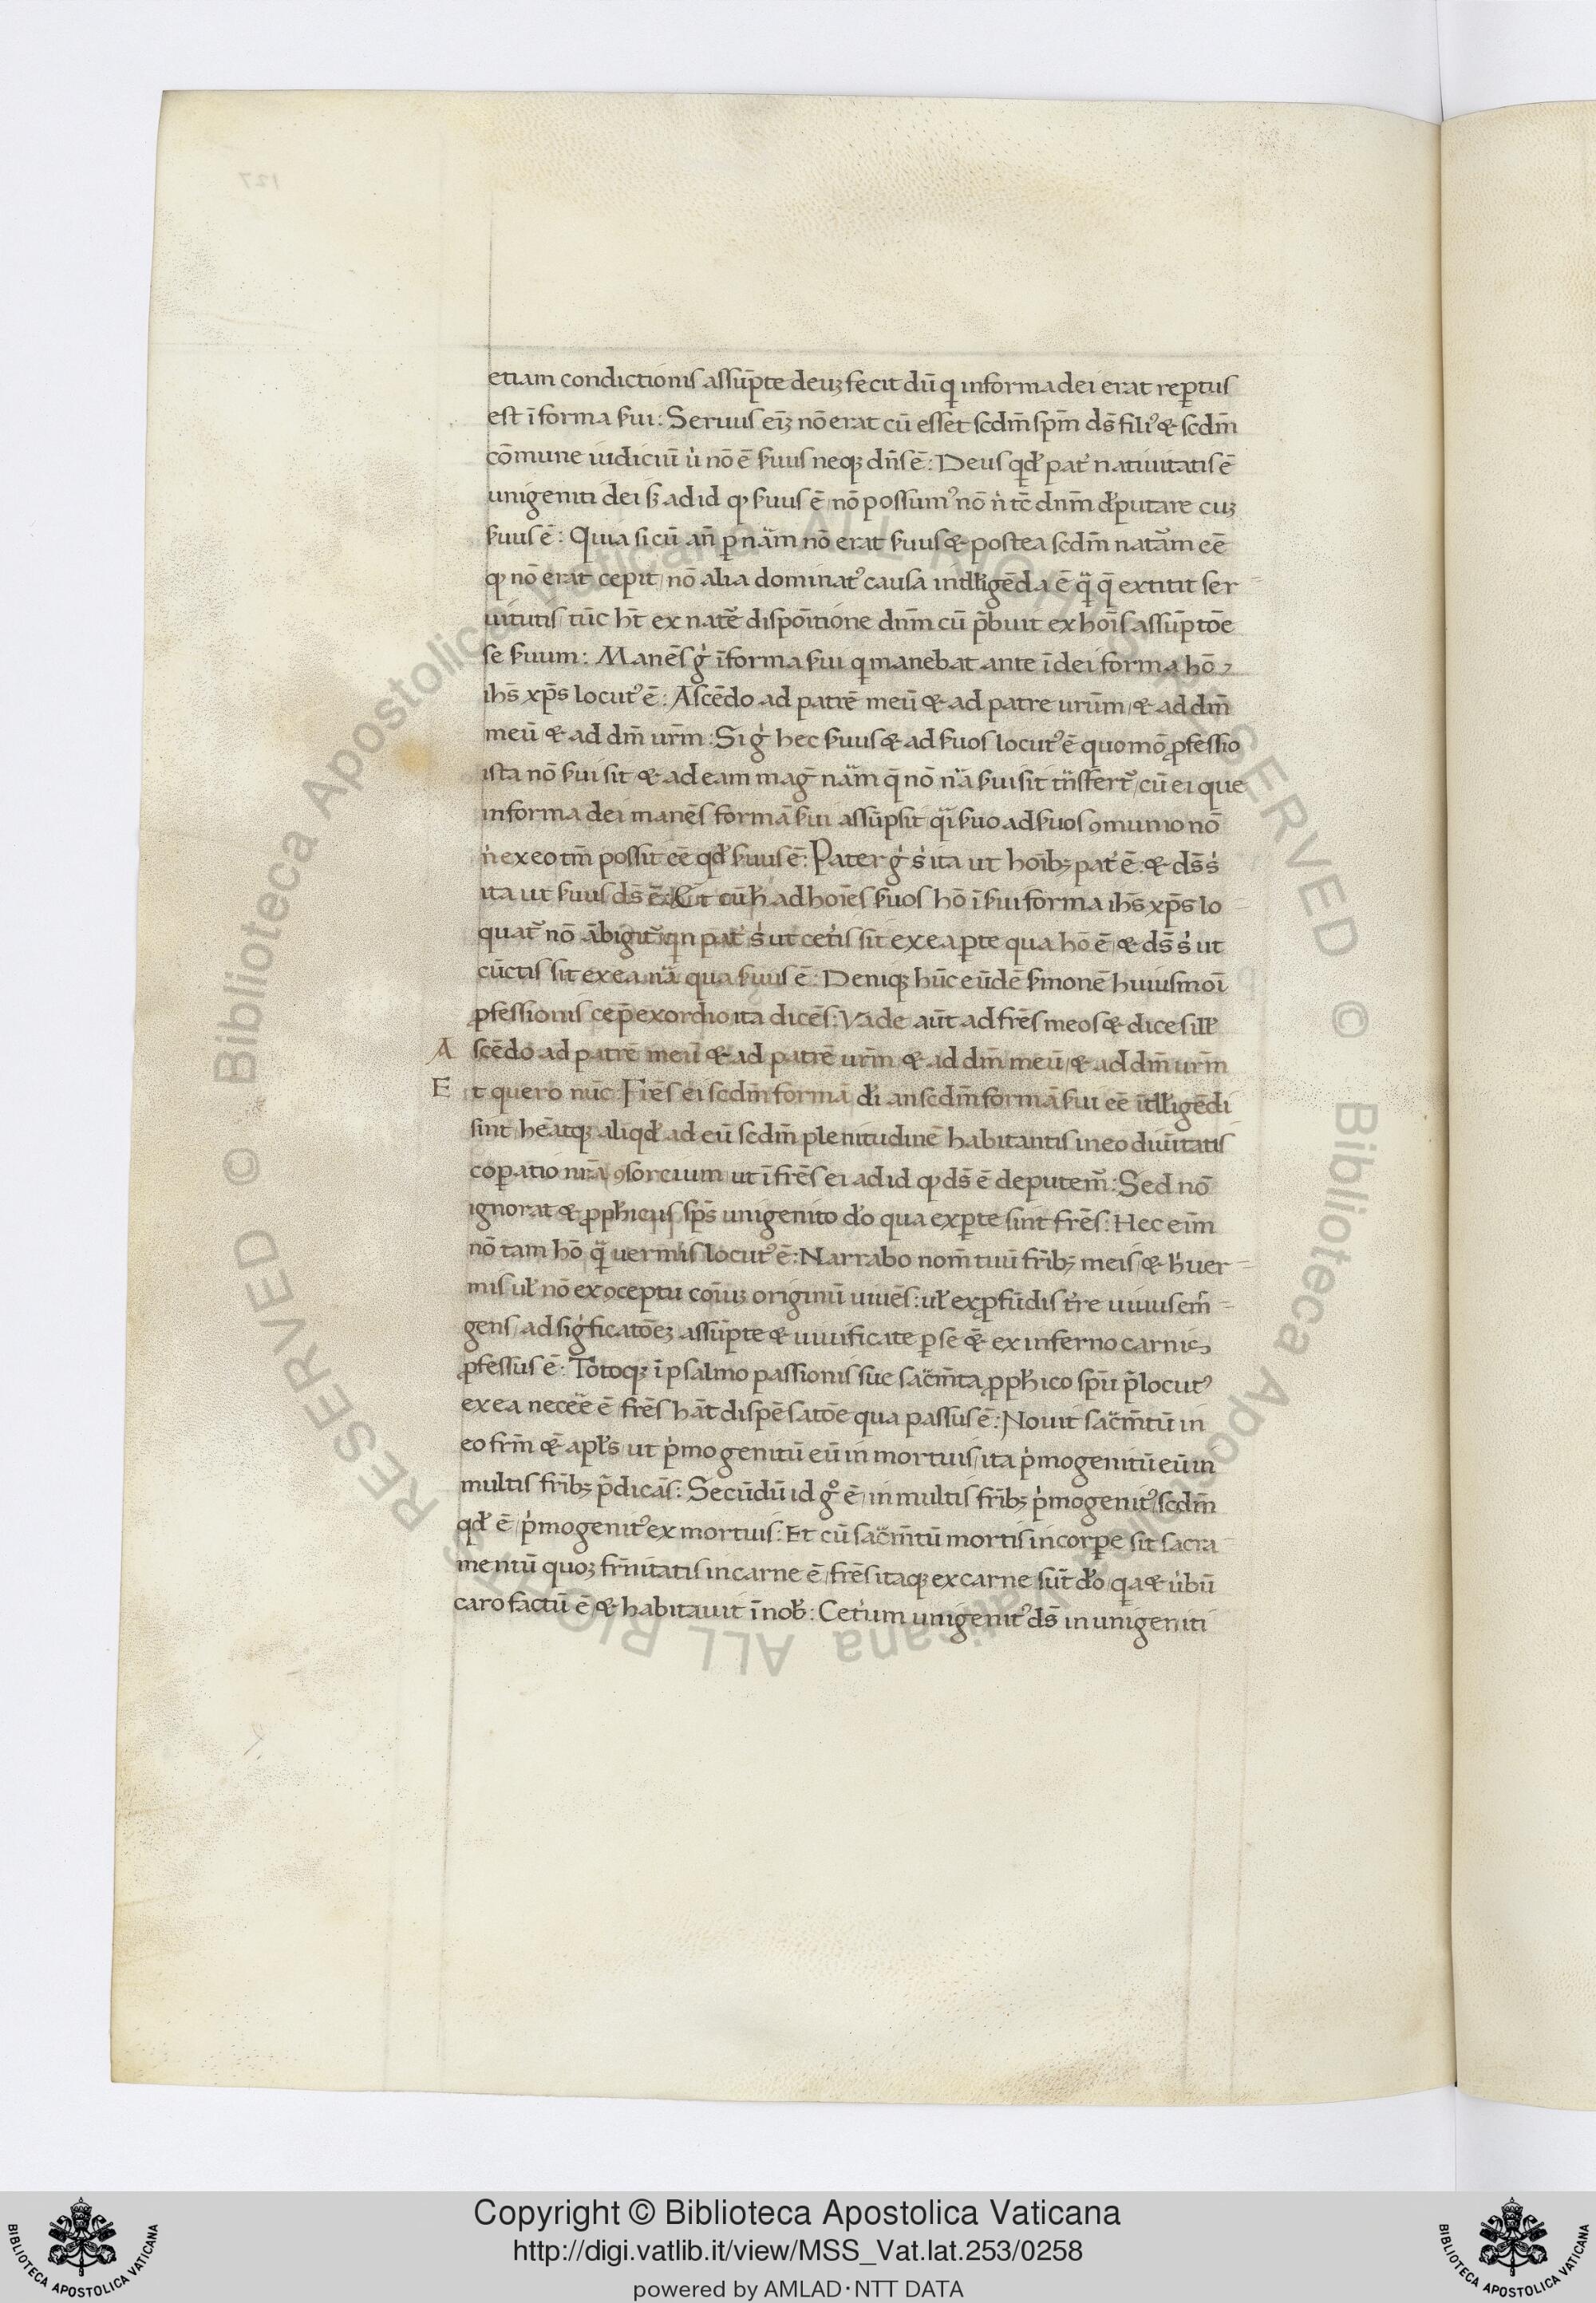 127
etiam condictionis assūpte deuʒ fecit dū q̣ informa dei erat rep̱tus
est ī forma s̄ui: Seruus eīʒ nō erat cū esset scdm̄ sp̄m ds̄ filiꝰ & scdm̄
cōmune iudiciū u̇ nō ē s̄uus neqʒ dn̄s ē: Deus qd̄ pat̄ natiuitatis ē
unigeniti dei sʒ ad id qꝫ s̄uus ē / nō possumꝰ nō n̄ tē dnm̄ d̄putare cuʒ
s̄uus ē: Quia si cū an̄ ꝑ nām nō erat s̄uus & postea scdm̄ natām eē
qꝫ nō erat cepit / nō alia dominatꝰ causa intllīgēda ē q̄ q̄ extitit ser
uitutis / tūc ht̄ ex natē dispōitione dnm̄ cū p̄buit ex hoīs assūptōe
se s̄uum: Manēs gͥ ī forma s̄ui q̣ manebat ante ī dei forma hō
ihs̄ xp̄s locutꝰ ē: Ascēdo ad patrē meū & ad patre urūm / & ad dm̄
meū & ad dm̄ urm̄: Si gͥ hec s̄uus & ad s̄uos locutꝰ ē quomō ꝓfessio
ista nō s̄ui sit / & ad eam maḡ nām q̄ nō nā s̄ui sit tn̄sfert̄ / cū ei que
informa dei manēs formā s̄ui assūpsit q̄i s̄uo ad s̄uos ꝯmunio nō
n̄ ex eo tm̄ possit eē qd̄ s̄uus ē: Pater gͥ s̄ ita ut hoībʒ pat̄ ē: & ds̄ s̄
ita ut s̄uus ds̄ ē: Et cū h̄ ad hoīes s̄uos hō ī s̄ui forma ihs̄ xp̄s lo
quat̄ nō ābigit̄ qn pat̄ s̄ ut cet̄is sit ex ea ꝑte qua hō ē / & ds̄ s̄ ut
cūctis sit ex ea nā qua s̄uus ē: Deniqʒ hūc eūdē s̄monē huiusmoī
ꝓfessionis cep̄ exordio ita dicēs: Vade aūt ad frēs meos & dices ill̄
A scēdo ad patrē meū & ad patrē urm̄ & ad dm̄ meū / & ad dm̄ urm̄
E t quero nūc Frēs ei scdm̄ formā d̄i an scdm̄ formā s̄ui eē ītll̄igēdi
sint / heātqʒ aliqd̄ ad eū scdm̄ plenitudinē habitantis in eo diuītatis
coꝑatio nrā ꝯsorcium / ut ī frēs ei ad id qꝫ ds̄ ē deputem̄: Sed nō
ignorat & ꝓph̄icus sp̄s unigenito d̄o qua ex ꝑte sint frēs: Hec eim̄
nō tam hō q̄ uermis locutꝰ ē: Narrabo nom̄ tuū frībʒ meis / & h̄ uer
mis ul̄ nō ex ꝯceptu cōiuʒ originū uiuēs: ul̄ ex ꝓfūdis t̄re uiuus em̄
gens / ad siḡficatōeʒ assūpte & uiuificate ꝑ se & ex inferno carnis
ꝓfessus ē: Totoqʒ ī psalmo passionis sue sacm̄ta ꝓph̄ico sp̄u p̄locutꝰ
ex ea neceē ē frēs hāt dispēsatōe qua passus ē: Nouit sacm̄tū in
eo frm̄ & apl̄s ut pͥmogenitū eū in mortuis / ita pͥmogenitū eū in
multis frībʒ p̄dicās: Secūdū id gͦ ē / in multis frībʒ pͥmogenitꝰ / scdm̄
qd̄ ē / pͥmogenitꝰ ex mortuis: Et cū sacm̄tū mortis in corꝑe sit / sacra
mentū quoʒ frn̄itatis in carne ē / frēs itaqʒ ex carne sūt d̄o / qa & u̇bū
caro factū ē & habitauit ī nob̄: Cet̄um unigenitꝰ ds̄ in unigeniti
Copyright © Biblioteca Apostolica Vaticana
http://digi.vatlib.it/view/MSS_Vat.lat.253/0258
powered by AMLAD·NTT DATA
BIBLIOTECA APOSTOLICA VATICANA
BIBLIOTECA APOSTOLICA VATICANA
© Biblioteca Apostolica Vaticana ALL RIGHTS RESERVED
© Biblioteca Apostolica Vaticana ALL RIGHTS RESERVED